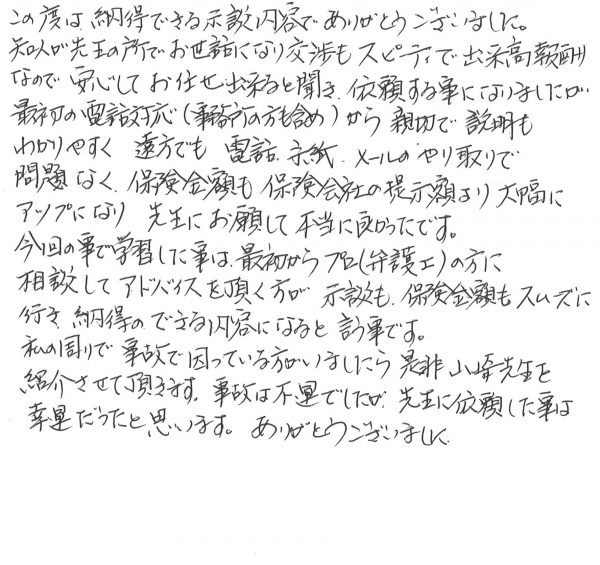 この度は納得できる示談内容でありがとうございました。
知人が先生の所でお世話になり交渉もスピーディで出来高報酬
なので安心してお任せ出来ると聞き、依頼する事になりましたが
最初の電話対応(事務所の方も含め)から親切で説明も
わかりやすく遠方でも電話、手紙、メールのやり取りで
問題なく、保険金額も保険会社の提示額より大幅に
アップになり先生にお願して本当に良かったです。
今回の事で学習した事は、最初からプロ(弁護士)の方に
相談してアドバイスを頂く方が示談も、保険金額もスムーズに
行き納得のできる内容になると言う事です。
私の周りで事故で困っている方がいましたら是非山﨑先生を
紹介させて頂きます。事故は不運でしたが、先生に依頼した事は
幸運だったと思います。ありがとうございました。